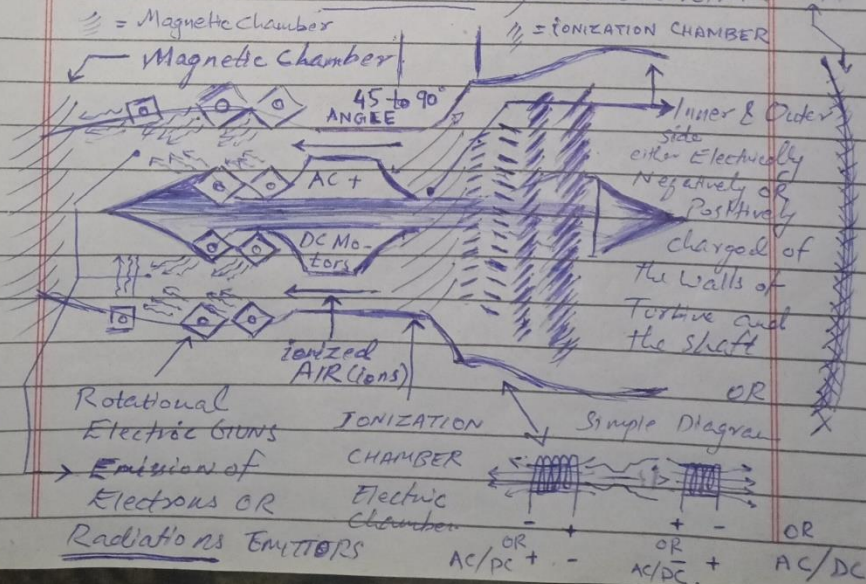 = Magnetic Chamber
= IONIZATION CHAMBER
Magnetic Chamber
45 to 90°
ANGLE
AC +
DC Mo-
tors
Inner & Outer
side
either Electrically
Negatively or
Positively
charged of
the walls of
and
the shaft
ionized
AIR (ions)
OR
Rotational
Electric GUNS
Emission of
Electrons OR
Radiations EMITTORS
IONIZATION
CHAMBER
Electric
Chamber
Simple Diagram
- +
OR
AC/DC + -
+ -
OR
AC/DC - +
OR
AC/DC